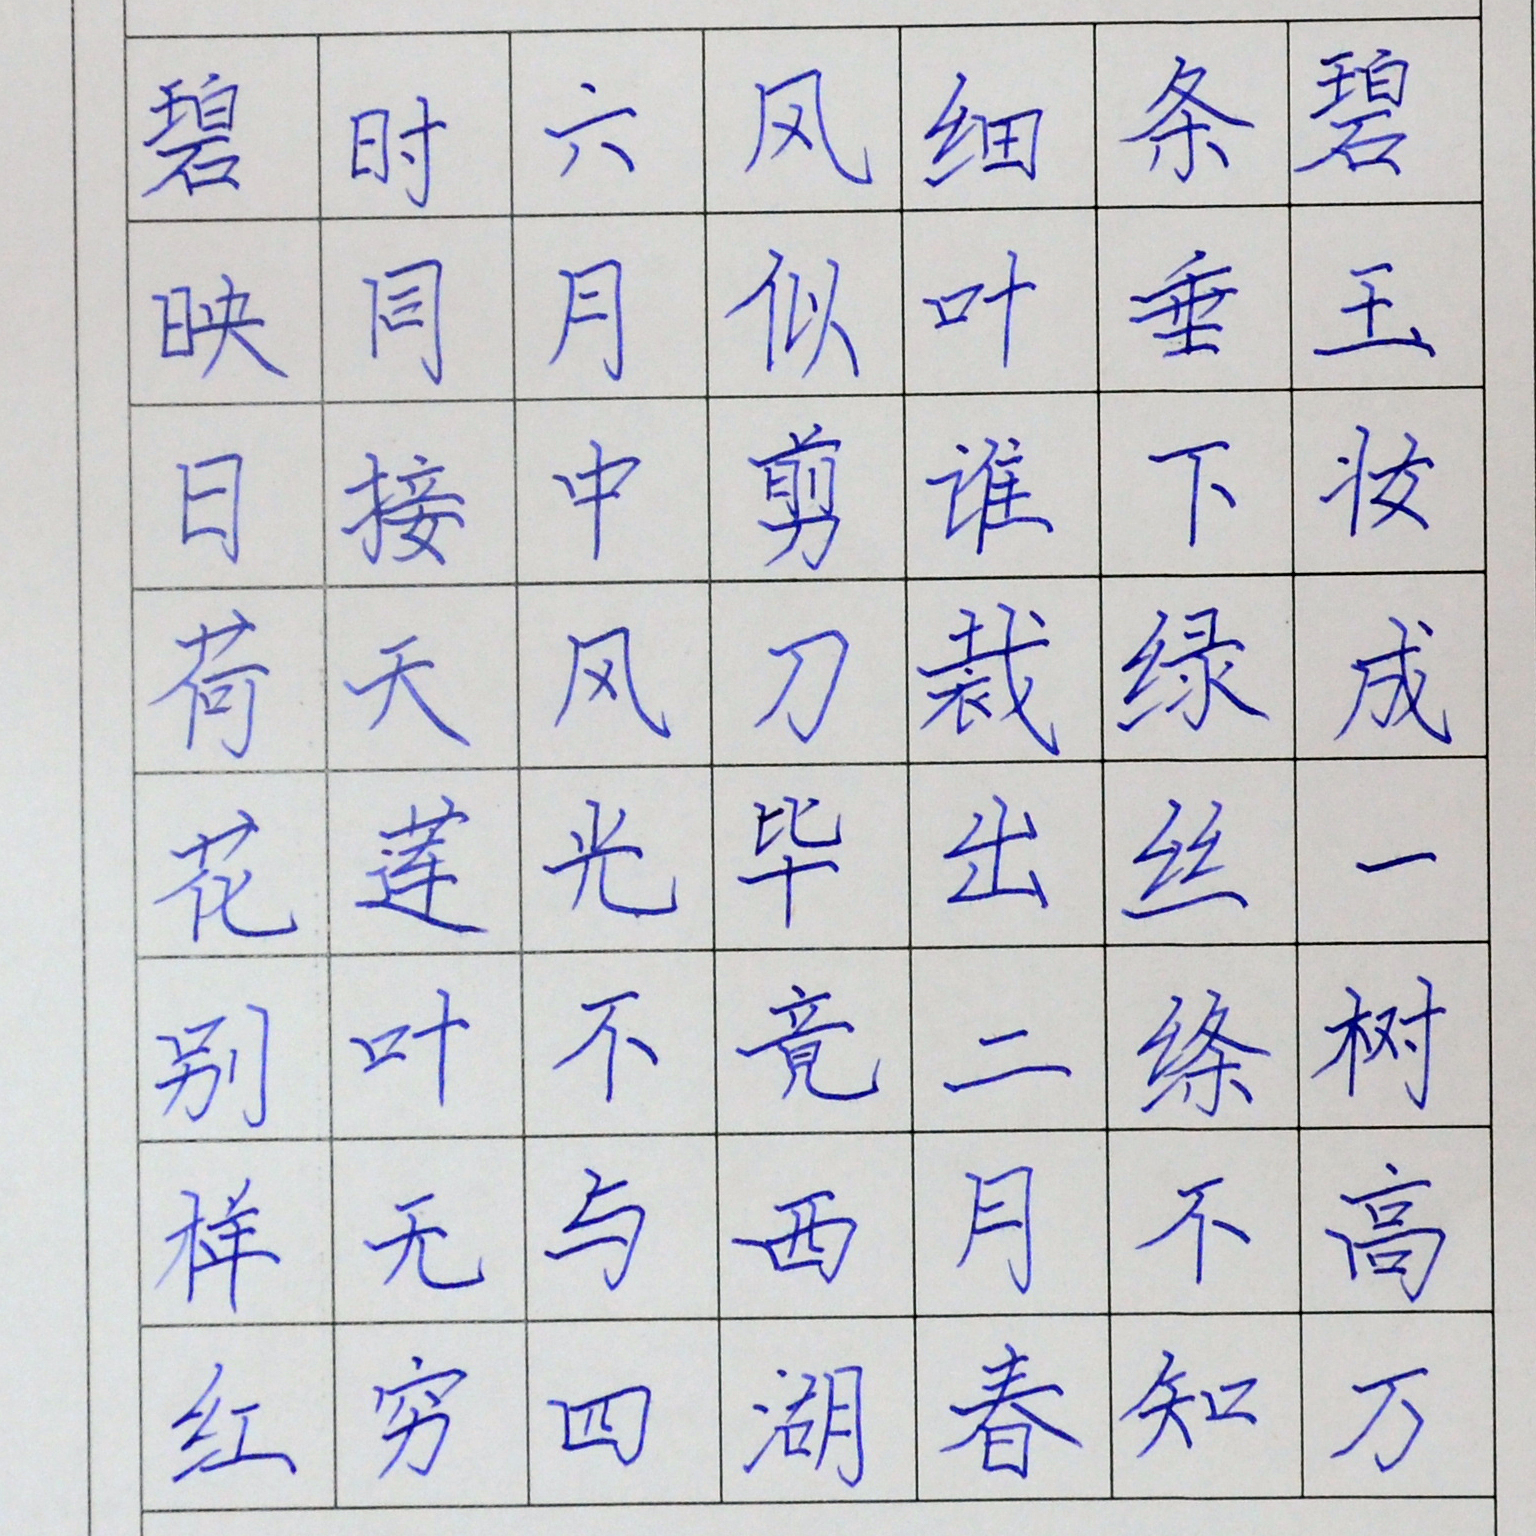 碧玉妆成一树高万
条垂下绿丝绦不知
细叶谁裁出二月春
风似剪刀毕竟西湖
六月中风光不与四
时同接天莲叶无穷
碧映日荷花别样红